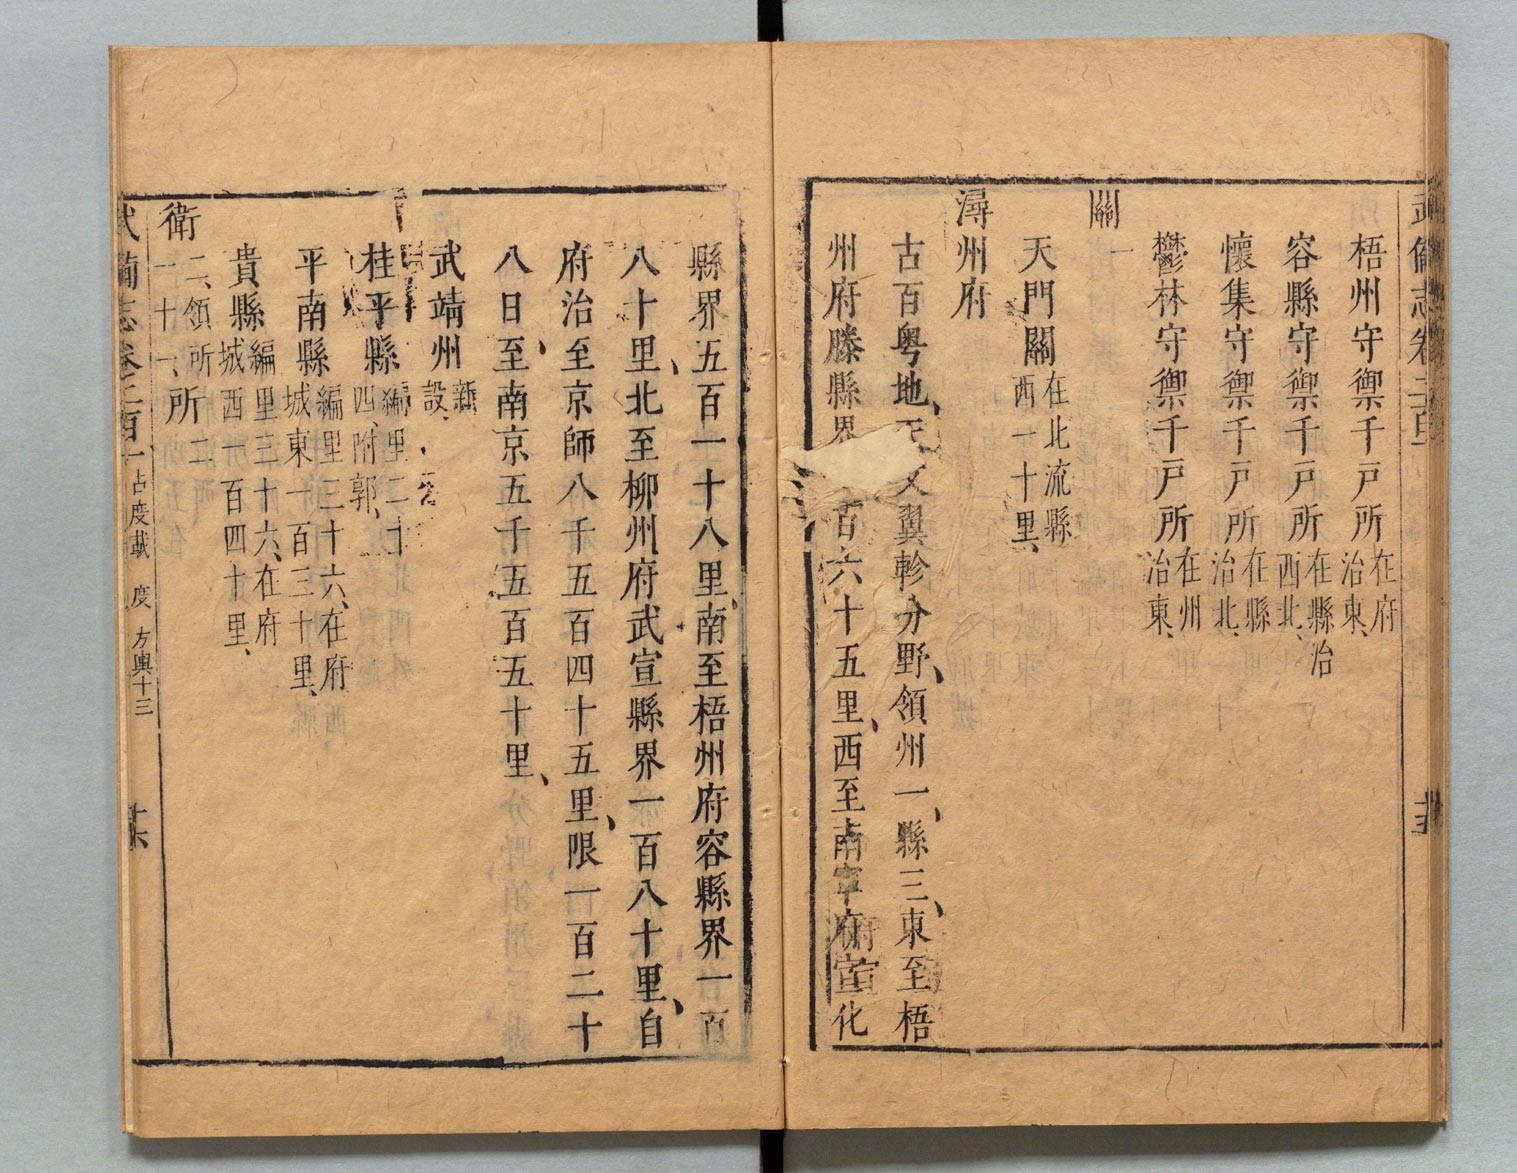 梧州守禦千戸所在府治東、
容縣守禦千戸所在縣治西北、
懷集守禦千戸所在縣治北、
鬱林守禦千戸所在州治東、
關一
天門關在北流縣西一十里、
潯州府
古百粤地、天文翼軫分野、領州一、縣三、東至梧
州府滕縣界 百六十五里、西至南寧府宣化
縣界五百一十八里、南至梧州府容縣界一百
八十里、北至柳州府武宣縣界一百八十里、自
府治至京師八千五百四十五里、限一百二十
八日、至南京五千五百五十里、
武靖州新設、
桂平縣編里二十四、附郭、
平南縣編里三十六、在府城東一百三十里、
貴縣編里三十六、在府城西 百四十里、
衛二、領所一十一、所二
武備志卷 占度載 度 方輿十三